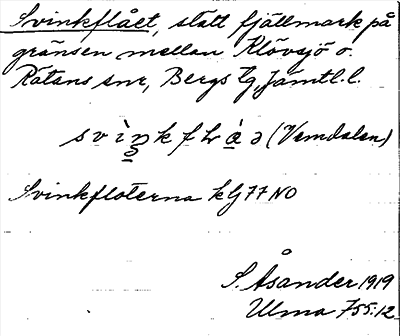 Svinkflået, slått fjällmark på
gränsen mellan Klövsjö o.
Rätans snr, Bergs tg, Jämtl. l.
svìŋkflà̤ə (Vemdalen)
Svinkfloterna kG77NO
S. Åsander 1919
Ulma 755:12